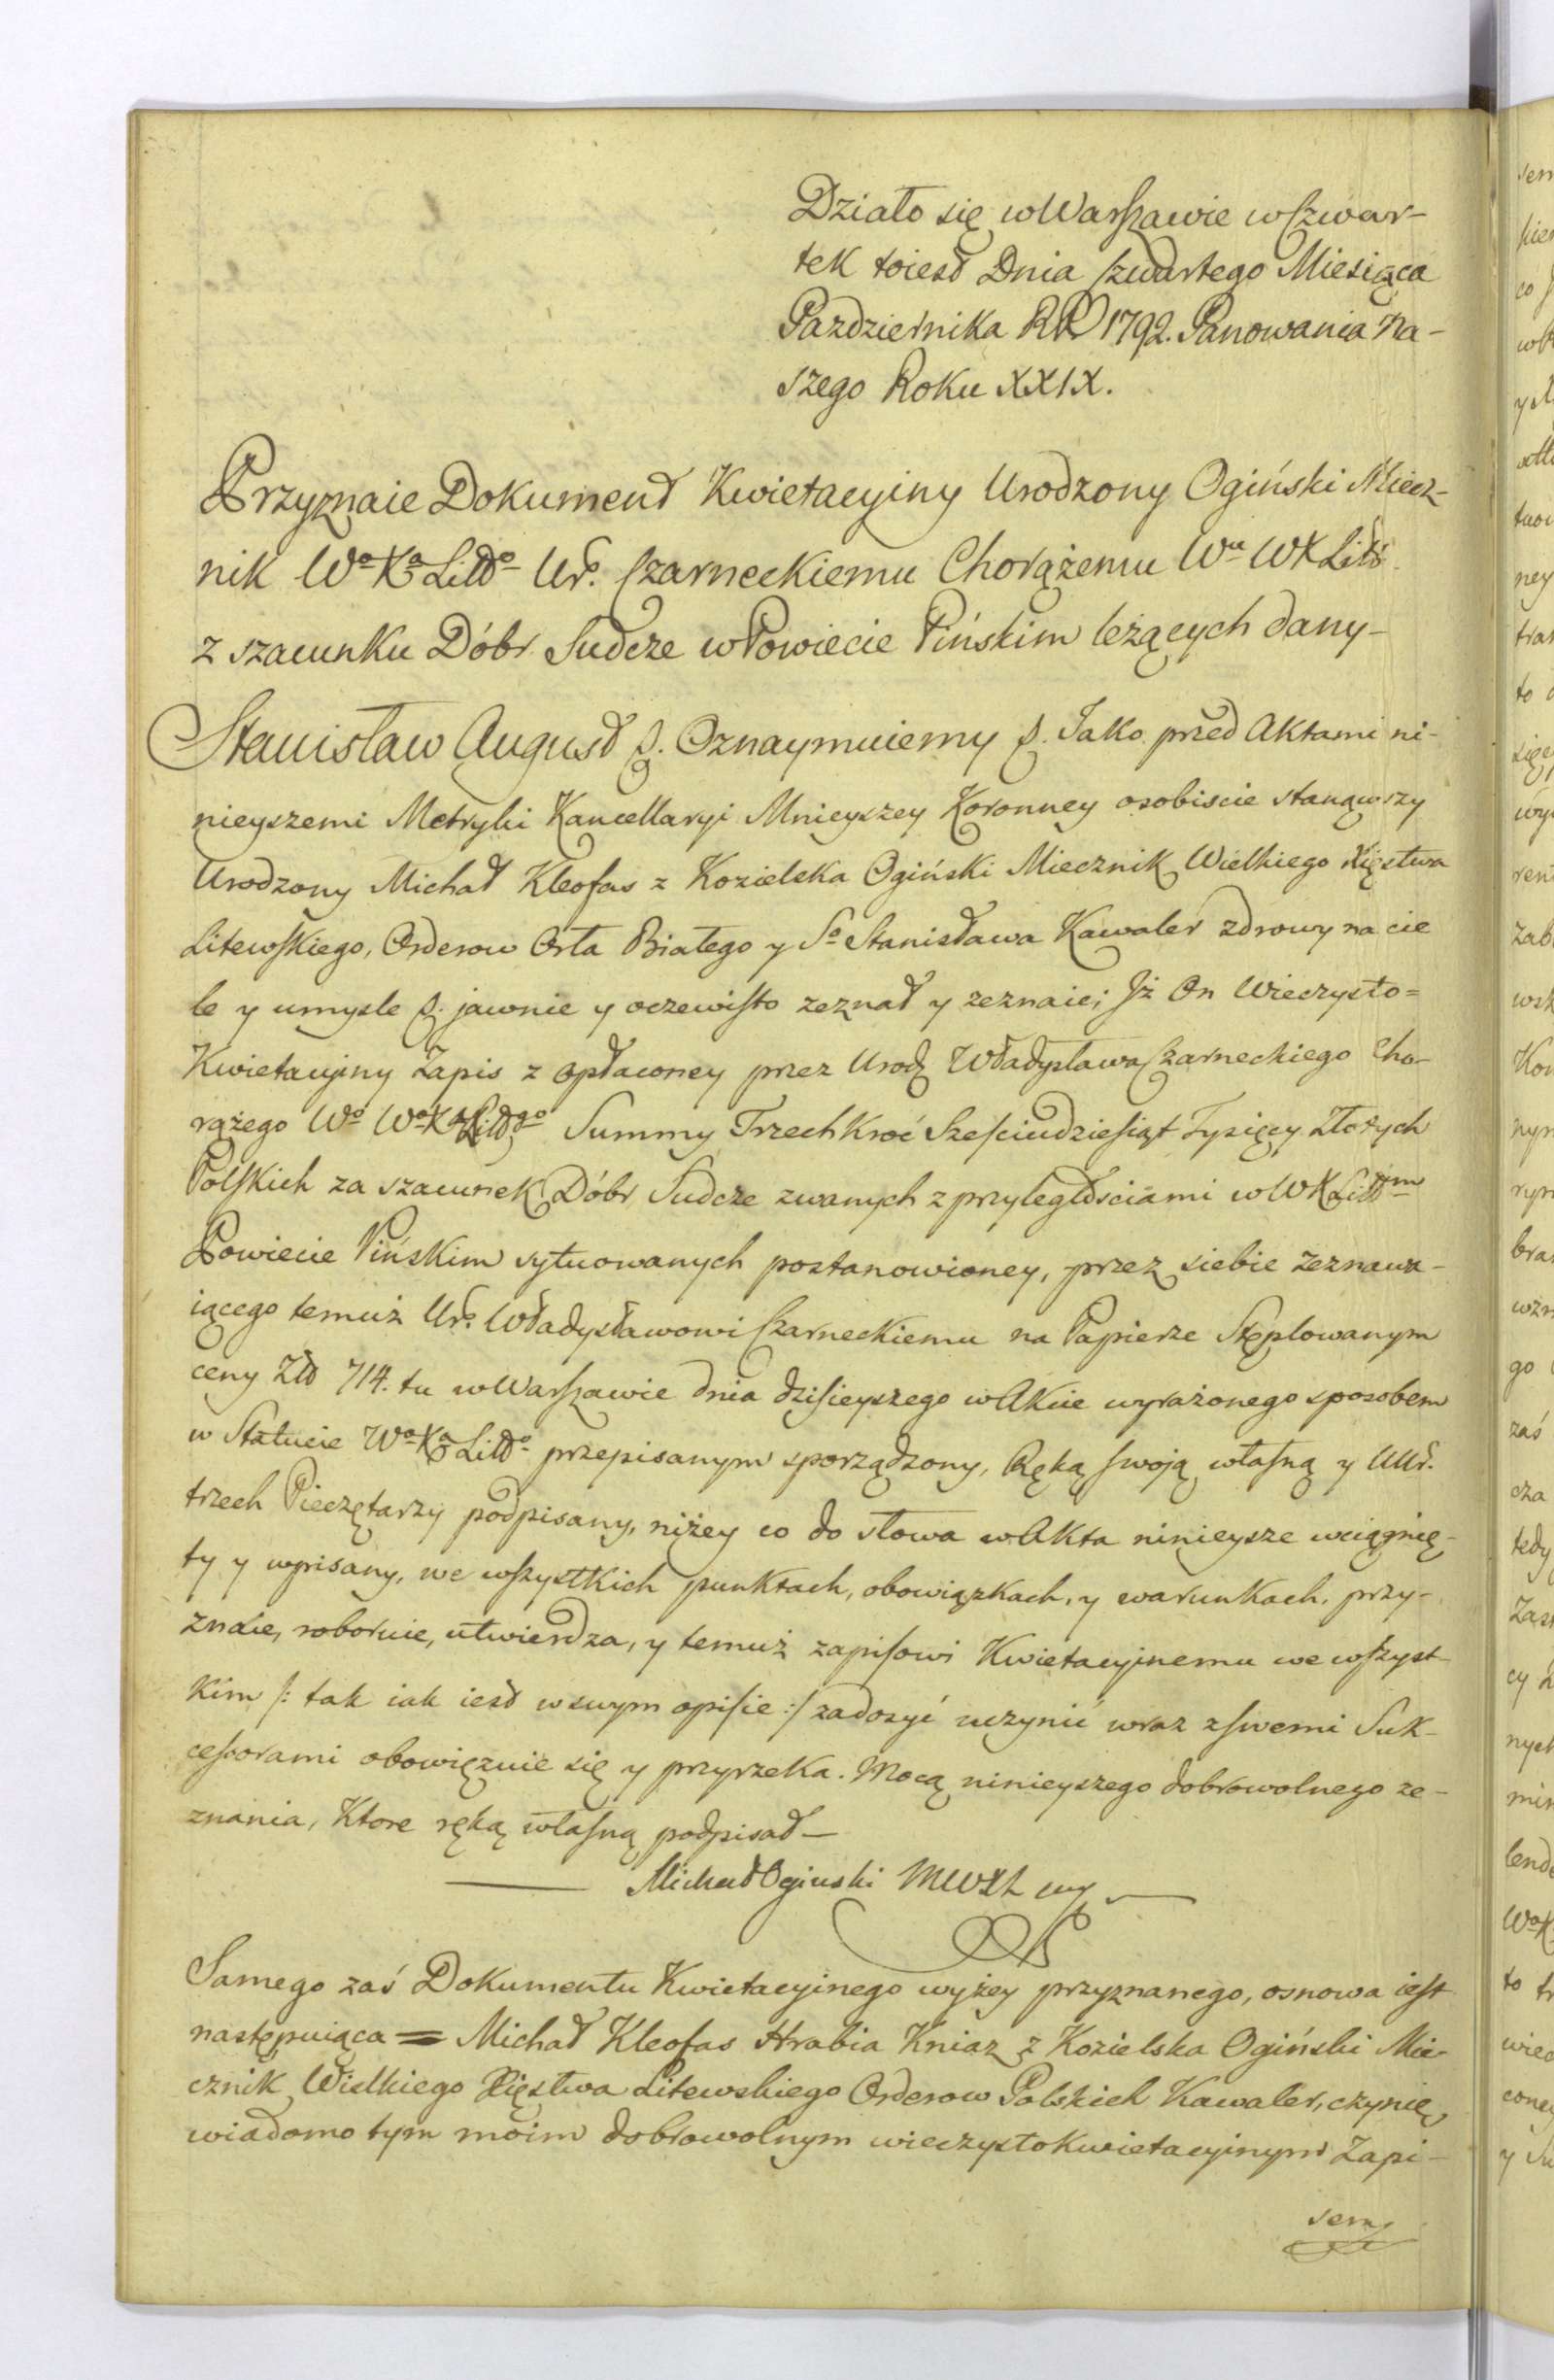 Działo się w Warszawie w Czwar-
tek toiest Dnia Czwartego Miesiąca
Pazdziernika RP 1792. Panowania Na-
szego Roku XXIX.
Przyznaie Dokument Kwietacyiny Urodzony Ogiński Miecz-
nik Wo Xa Littgo Ur. Czarneckiemu Chorążemu Wu WXLitt.
z szacunku Dóbr Sudcze w Powiecie Pińskim leżących dany-
Stanisław August &. Oznaymuiemy &. Jako przed Aktami ni-
nieyszemi Metryki Kancellaryi Mnieyszey Koronney osobiscie stanąwszy
Urodzony Michał Kleofas z Kozielska Ogiński Miecznik Wielkiego Xięstwa
Litewskiego, Orderow Orła Białego y So Stanisława Kawaler zdrowy na cie
le y umysle &. jawnie y oczewisto zeznał y zeznaie; Jż On Wieczysto=
Kwietacyiny Zapis z opłaconey przez Urodz Władysława Czarneckiego Cho-
rążego Wo Wo Xa Littgo Summy Trzech Kroć Sześciudziesiąt Tysięcy Złotych
Polskich za szacunek Dóbr Sudcze zwanych z przyległościami w WXLittm
Powiecie Pińskim sytuowanych postanowioney, przez siebie zeznawa-
iącego temuż Ur. Władysławowi Czarneckiemu na Papierze Stęplowanym
ceny Zł 714. tu w Warszawie dnia dzisieyszego w Akcie wyrażonego sposobem
w Statucie Wo Xa Littgo przepisanym sporządzony, Ręką swoją własną y UUr.
trzech Pieczętarzy podpisany, niżey co do słowa w Akta ninieysze wciągnię-
ty y wpisany, we wszystkich punktach, obowiązkach, y warunkach, przy-
znaie, roboruie, utwierdza, y temuż zapisowi Kwietacyjnemu we wszyst-
kim /: tak iak iest w swym opisie :/ zadosyć uczynić wraz z swemi Suk-
cessorami obowięzuie się y przyrzeka. Mocą ninieyszego dobrowolnego ze-
znania, Ktore ręką własną podpisał—
Michał Oginski MWXL mp
Samego zaś Dokumentu Kwietacyinego wyżey przyznanego, osnowa iest
następuiąca = Michał Kleofas Hrabia Kniaz z Kozielska Ogiński Mie-
cznik Wielkiego Xięstwa Litewskiego Orderow Polskich Kawaler, czynię
wiadomo tym moim dobrowolnym wieczysto Kwietacyinym Zapi-
sem